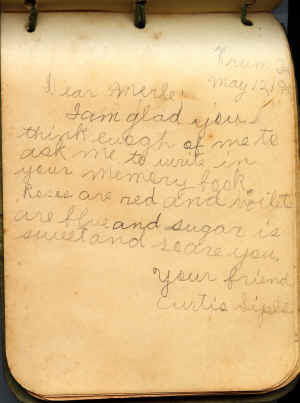 Krum
May 12, 19
Dear Merle
I am glad you
think enogh of me to
ask me to write in
your memory book.
Roses are red and voilets
are blue and sugar is
sweet and so are you.
Your friend
Curtis